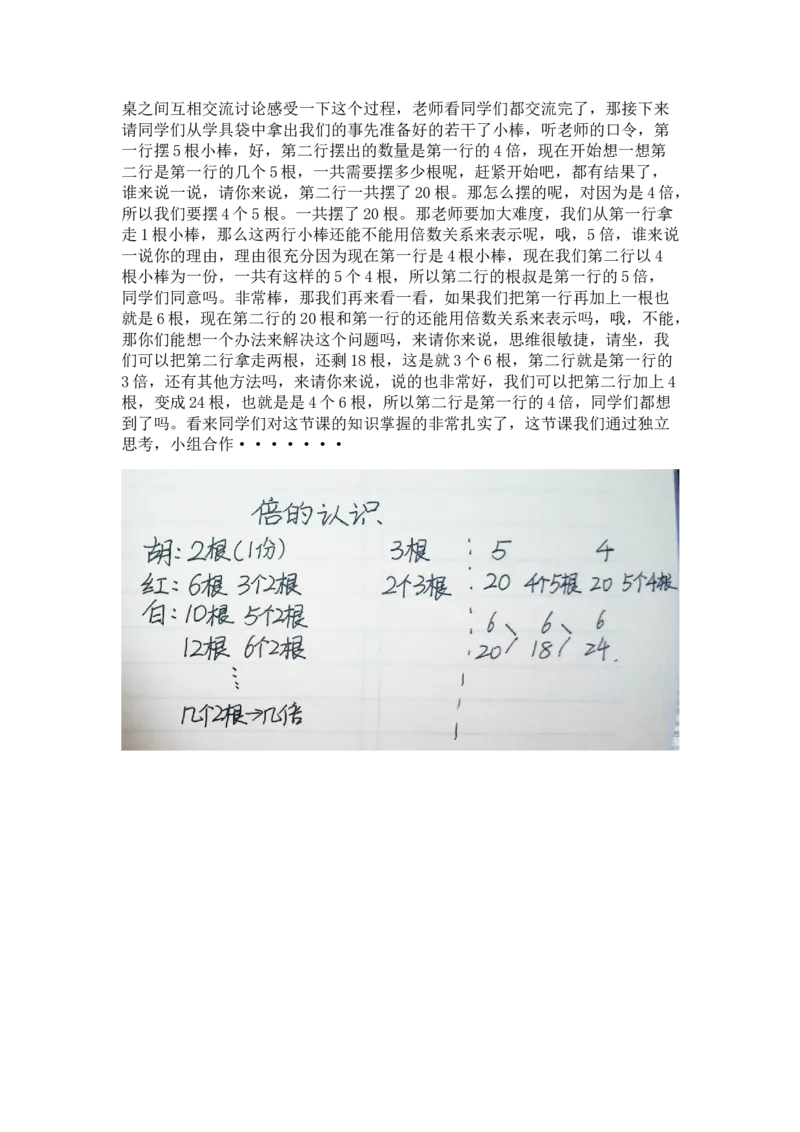 桌之间互相交流讨论感受一下这个过程，老师看同学们都交流完了，那接下来
请同学们从学具袋中拿出我们的事先准备好的若干了小棒，听老师的口令，第
一行摆5根小棒，好，第二行摆出的数量是第一行的4倍，现在开始想一想第
二行是第一行的几个5根，一共需要摆多少根呢，赶紧开始吧，都有结果了，
谁来说一说，请你来说，第二行一共摆了20根。那怎么摆的呢，对因为是4倍，
所以我们要摆4个5根。一共摆了20根。那老师要加大难度，我们从第一行拿
走1根小棒，那么这两行小棒还能不能用倍数关系来表示呢，哦，5倍，谁来说
一说你的理由，理由很充分因为现在第一行是4根小棒，现在我们第二行以4
根小棒为一份，一共有这样的5个4根，所以第二行的根叔是第一行的5倍，
同学们同意吗。非常棒，那我们再来看一看，如果我们把第一行再加上一根也
就是6根，现在第二行的20根和第一行的还能用倍数关系来表示吗，哦，不能，
那你们能想一个办法来解决这个问题吗，来请你来说，思维很敏捷，请坐，我
们可以把第二行拿走两根，还剩18根，这是就3个6根，第二行就是第一行的
3倍，还有其他方法吗，来请你来说，说的也非常好，我们可以把第二行加上4
根，变成24根，也就是是4个6根，所以第二行是第一行的4倍，同学们都想
到了吗。看来同学们对这节课的知识掌握的非常扎实了，这节课我们通过独立
思考，小组合作·······
倍的认识
胡：2根（1份） 3根 5 4
红：6根 3个2根 2个3根 20 4个5根 20 5个4根
白：10根 5个2根 6 6 6
12根 6个2根 20 18 24
⋮
几个2根→几倍